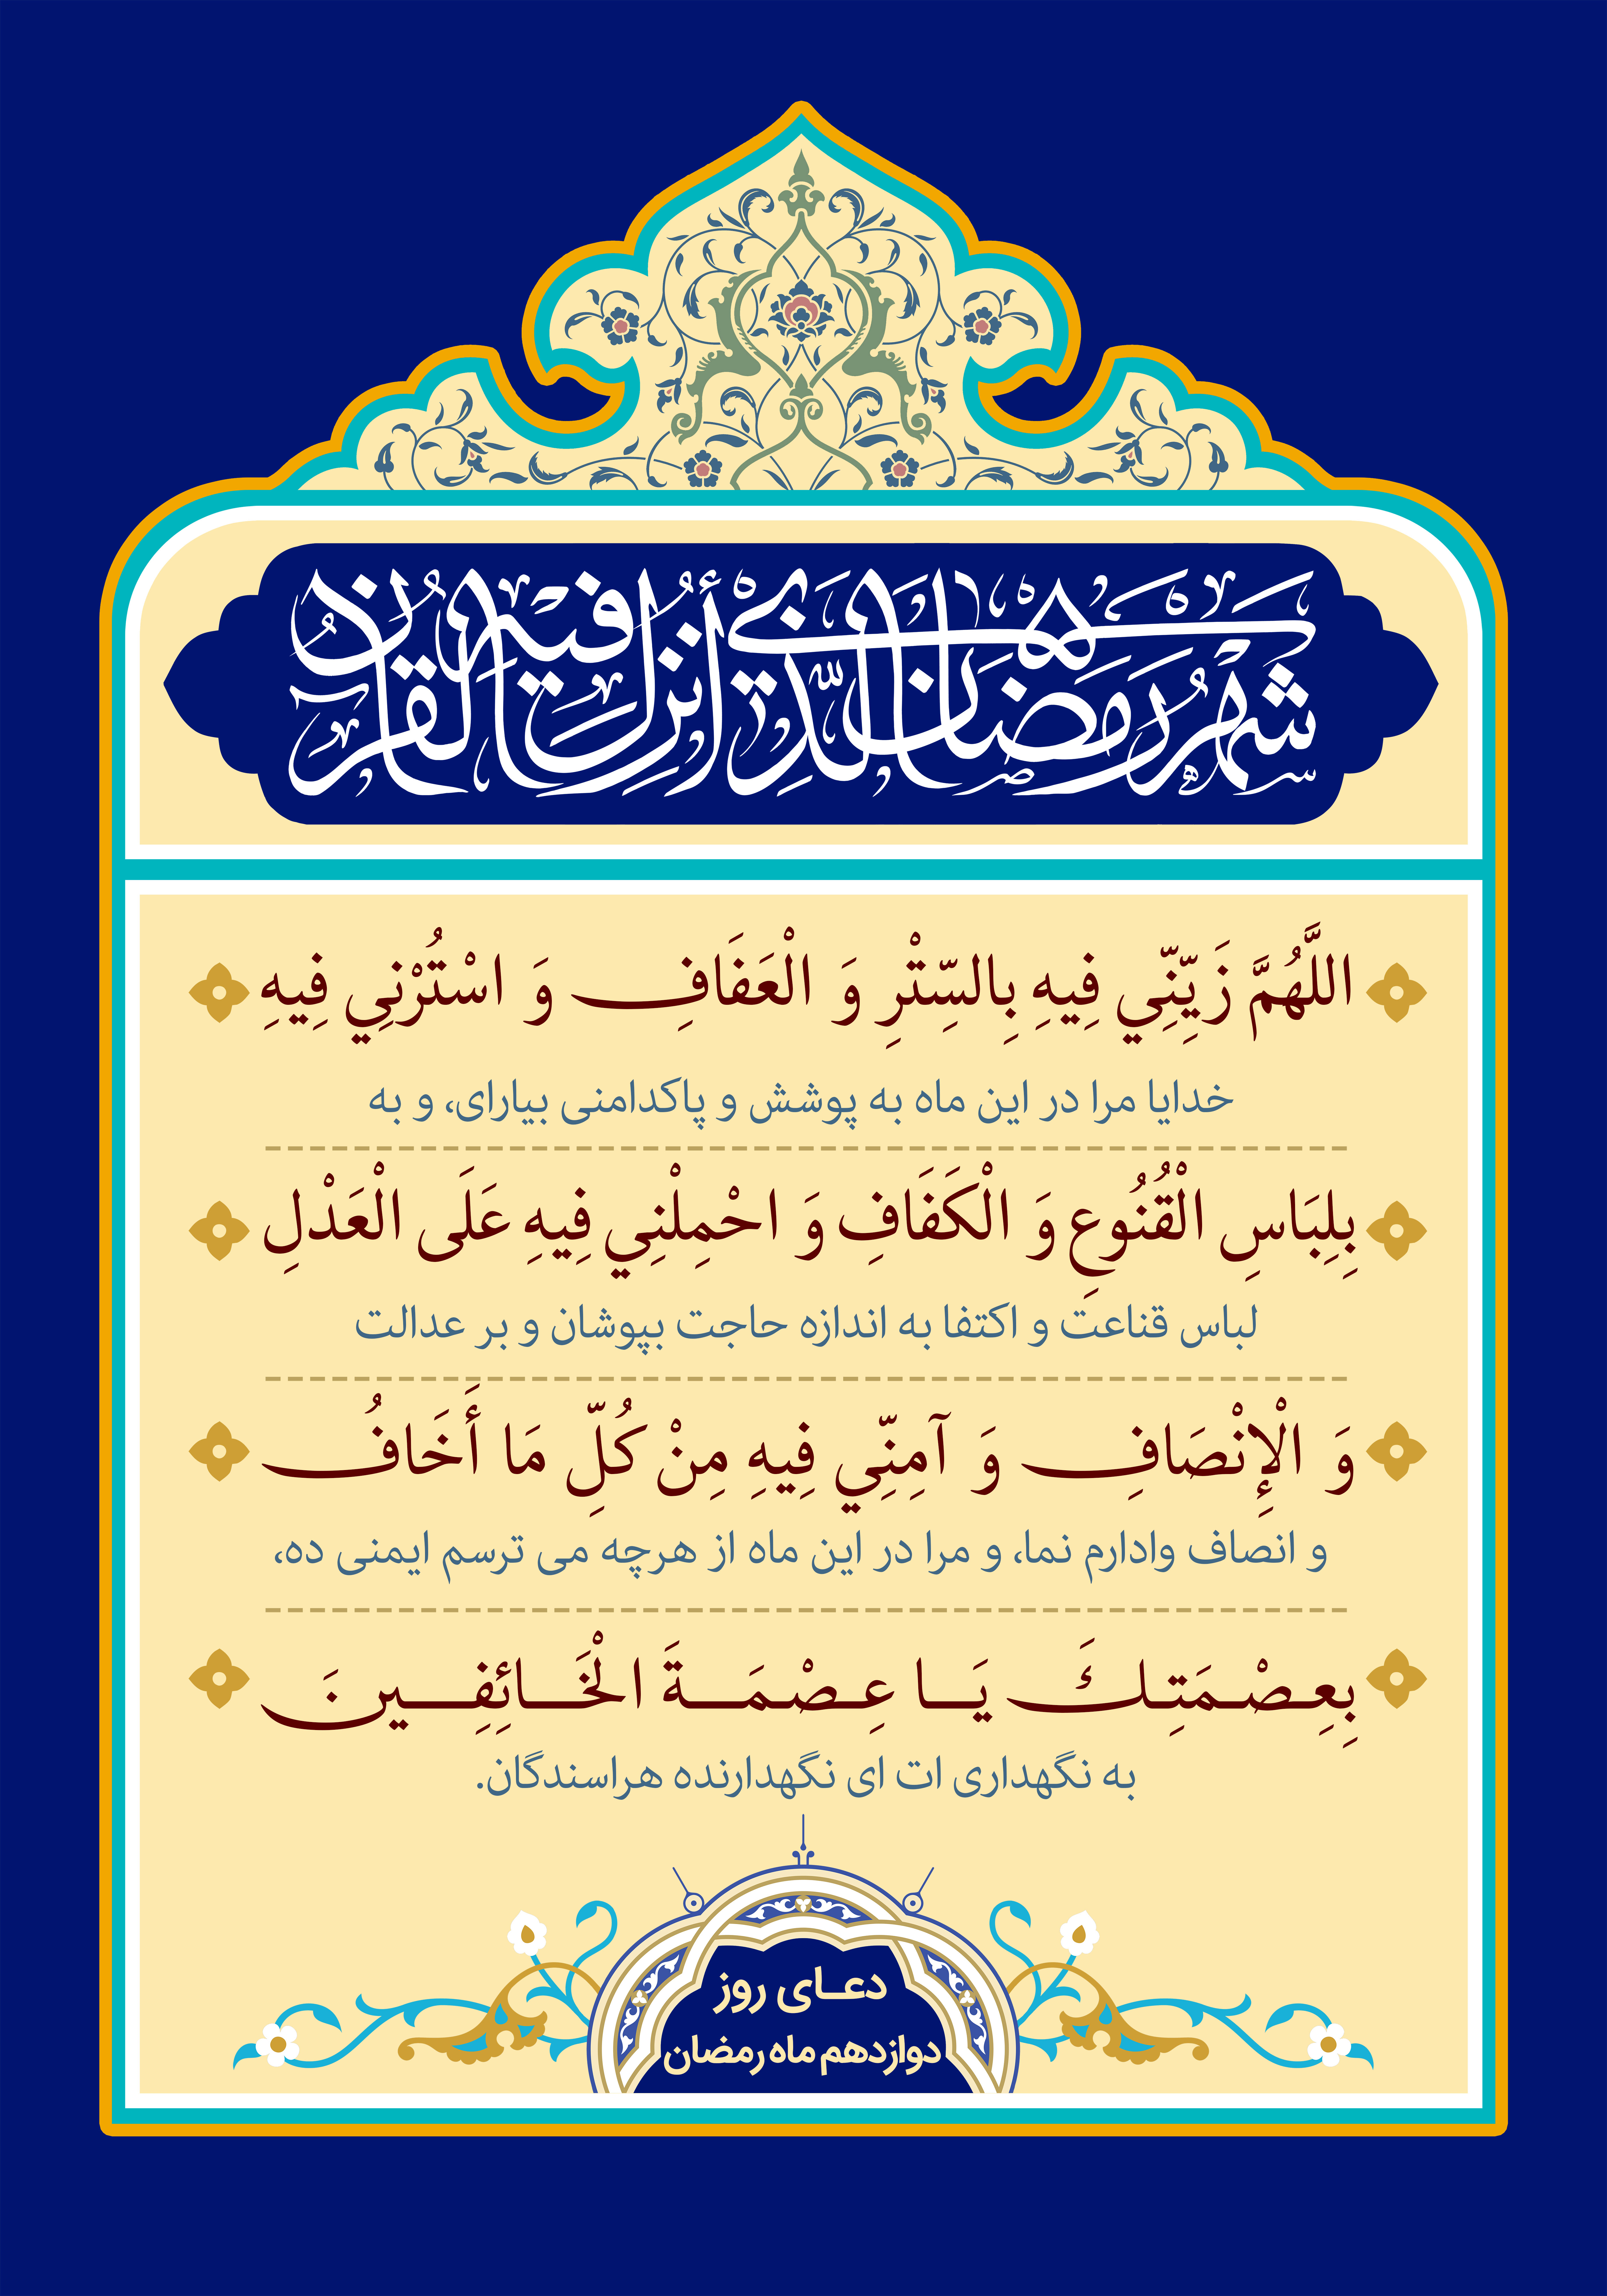 شهر رمضان الّذي أنزل فيه القرآن
اللَّهُمَّ زَيِّنِّي فِيهِ بِالسِّتْرِ وَ الْعَفَافِ وَ اسْتُرْنِي فِيهِ
خدایا مرا در این ماه به پوشش و پاکدامنی بیارای، و به
بِلِبَاسِ الْقُنُوعِ وَ الْكَفَافِ وَ احْمِلْنِي فِيهِ عَلَى الْعَدْلِ
لباس قناعت و اکتفا به اندازه حاجت بپوشان و بر عدالت
وَ الْإِنْصَافِ وَ آمِنِّي فِيهِ مِنْ كُلِّ مَا أَخَافُ
و انصاف وادارم نما، و مرا در این ماه از هرچه می ترسم ایمنی ده،
بِعِصْمَتِكَ يَا عِصْمَةَ الْخَائِفِينَ
به نگهداری ات ای نگهدارنده هراسندگان.
دعای روز
دوازدهم ماه رمضان